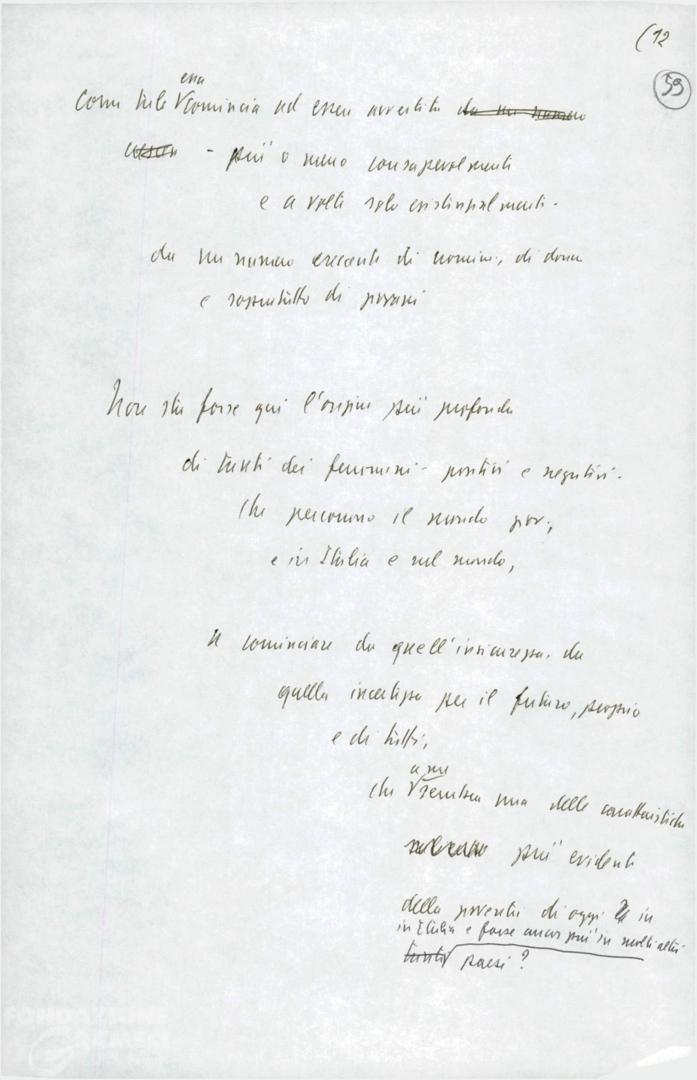 (12
59
Come tale essa comincia ad essere avvertita da un numero
- più o meno consapevolmente
e a volte solo esistenzialmente -
da un numero crescente di uomini, di donne
e soprattutto di giovani
Non sta forse qui l'origine più profonda
di tanti dei fenomeni - positivi e negativi -
che percorrono il mondo giov.,
e in Italia e nel mondo,
a cominciare da quell'insicurezza, da
quella incertezza per il futuro, proprio
e di tutti,
che a me sembra una delle caratteristiche
più evidenti
della gioventù di oggi in
in Italia e forse ancor più in molti altri
tanti paesi?
FONDAZIONE
GRAMSCI